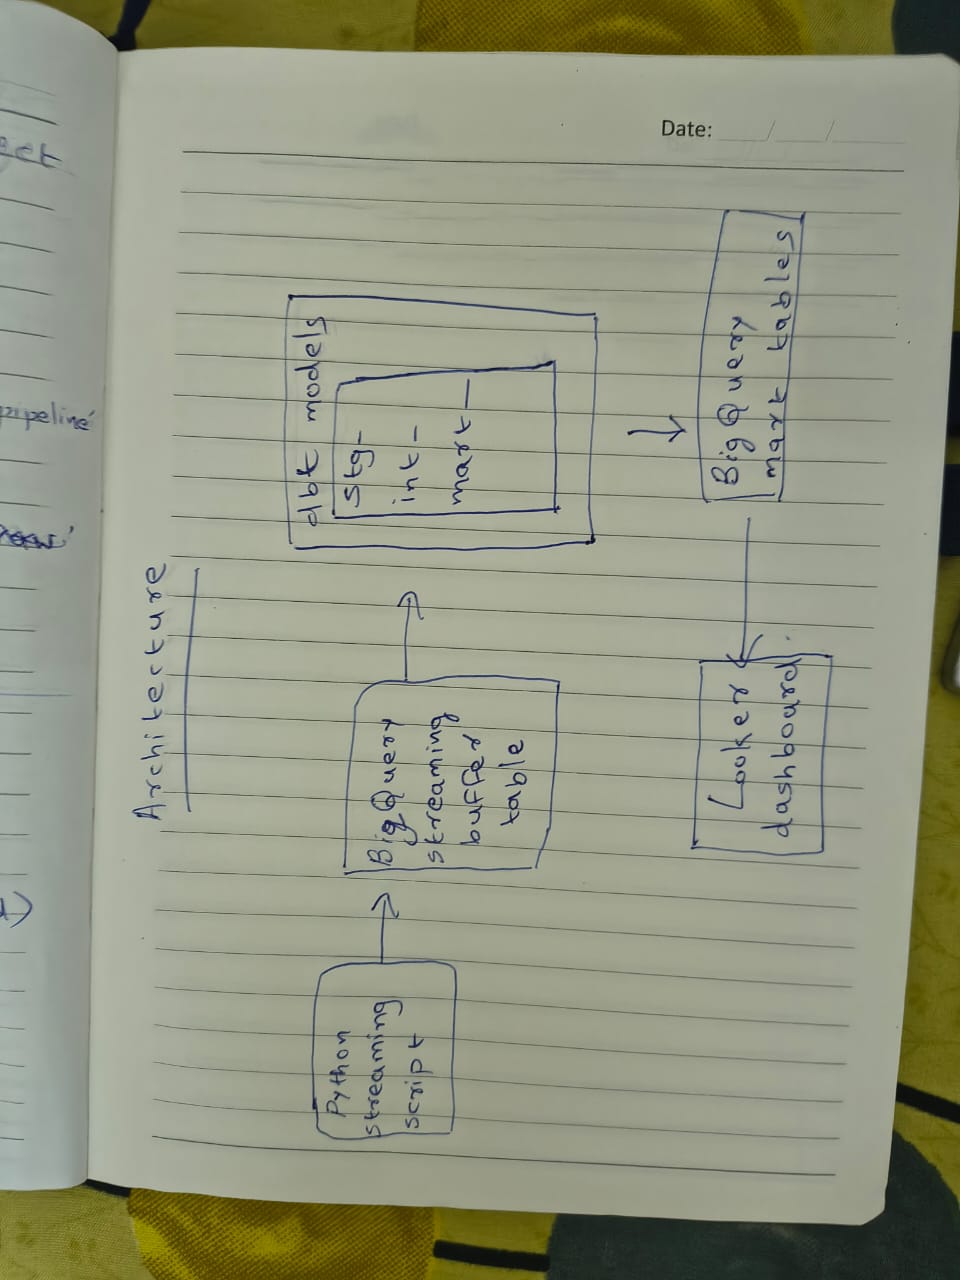 Date: __/__/__
Architecture
Python
streaming
script
BigQuery
streaming
buffer
table
dbt models
stg_
int_
mart_
BigQuery
mart tables
Looker
dashboard
ect
pipeline